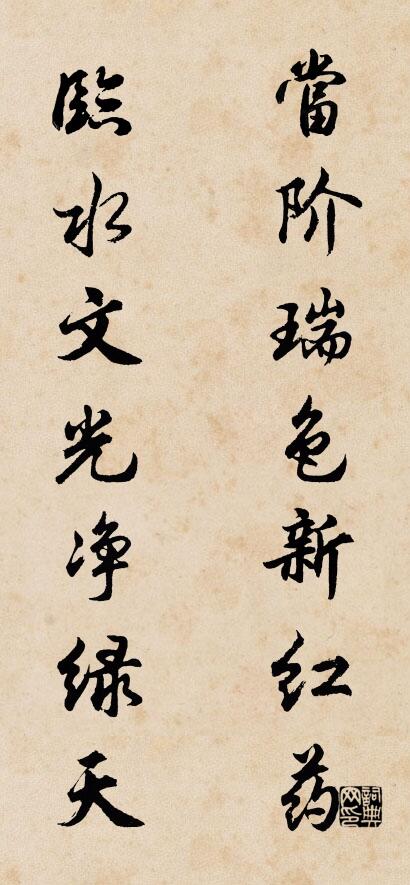 當阶瑞色新红药
臨水文光净绿天
詞典网印